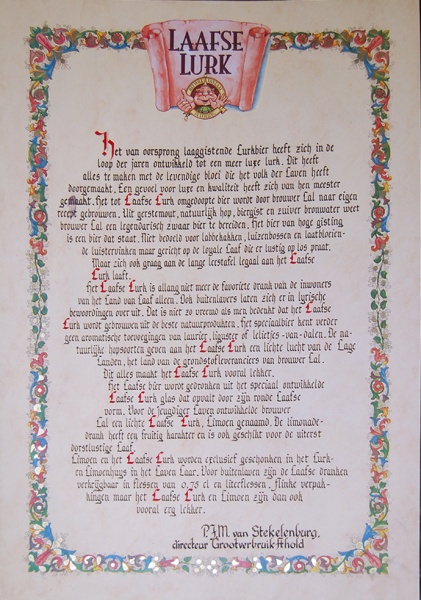 LAAFSE
LURK
Het van oorsprong laaggistende Lurkbier heeft zich in de
loop der jaren ontwikkeld tot een meer luxe lurk. Dit heeft
alles te maken met de levendige bloei die het volk der Laven heeft
doorgemaakt. Een gevoel voor luxe en kwaliteit heeft zich van hen meester
gemaakt. Het tot Laafse Lurk omgedoopte bier wordt door brouwer Lal naar eigen
recept gebrouwen. Uit gerstemout, natuurlijk hop, biergist en zuiver bronwater weet
brouwer Lal een legendarisch zwaar bier te bereiden. Het bier van hoge gisting
is een bier dat staat. Niet bedoeld voor labbekakken, luizenbossen en laatbloeien-
de luistervinken maar gericht op de loyale Laaf die er lustig op los praat.
Maar zich ook graag aan de lange leestafel legaal aan het Laafse
Lurk laaft.
Het Laafse Lurk is allang niet meer de favoriete drank van de inwoners
van het Land van Laaf alleen. Ook buitenlavers laten zich er in lyrische
bewoordingen over uit. Dat is niet zo vreemd als men bedenkt dat het Laafse
Lurk wordt gebrouwen uit de beste natuurprodukten. Het speciaalbier kent verder
geen aromatische toevoegingen van laurier, liguster of lelietjes-van-dalen. De na-
tuurlijke hopsoorten geven aan het Laafse Lurk een lichte lucht van de Lage
Landen, het land van de grondstofleveranciers van brouwer Lal.
Dit alles maakt het Laafse Lurk vooral lekker.
Het Laafse bier wordt gedronken uit het speciaal ontwikkelde
Laafse Lurk glas dat opvalt door zijn ronde Laafse
vorm. Voor de jeugdiger Laven ontwikkelde brouwer
Lal een lichte Laafse Lurk, Limoen genaamd. De limonade-
drank heeft een fruitig karakter en is ook geschikt voor de uiterst
dorstlustige Laaf.
Limoen en het Laafse Lurk worden exclusief geschonken in het Lurk-
en Limoenhuys in het Laven Laar. Voor buitenlaven zijn de Laafse dranken
verkrijgbaar in flessen van 0,75 cl en literflessen. Flinke verpak-
kingen maar het Laafse Lurk en Limoen zijn dan ook
vooral erg lekker.
P.J.M. van Stekelenburg,
directeur Grootverbruik